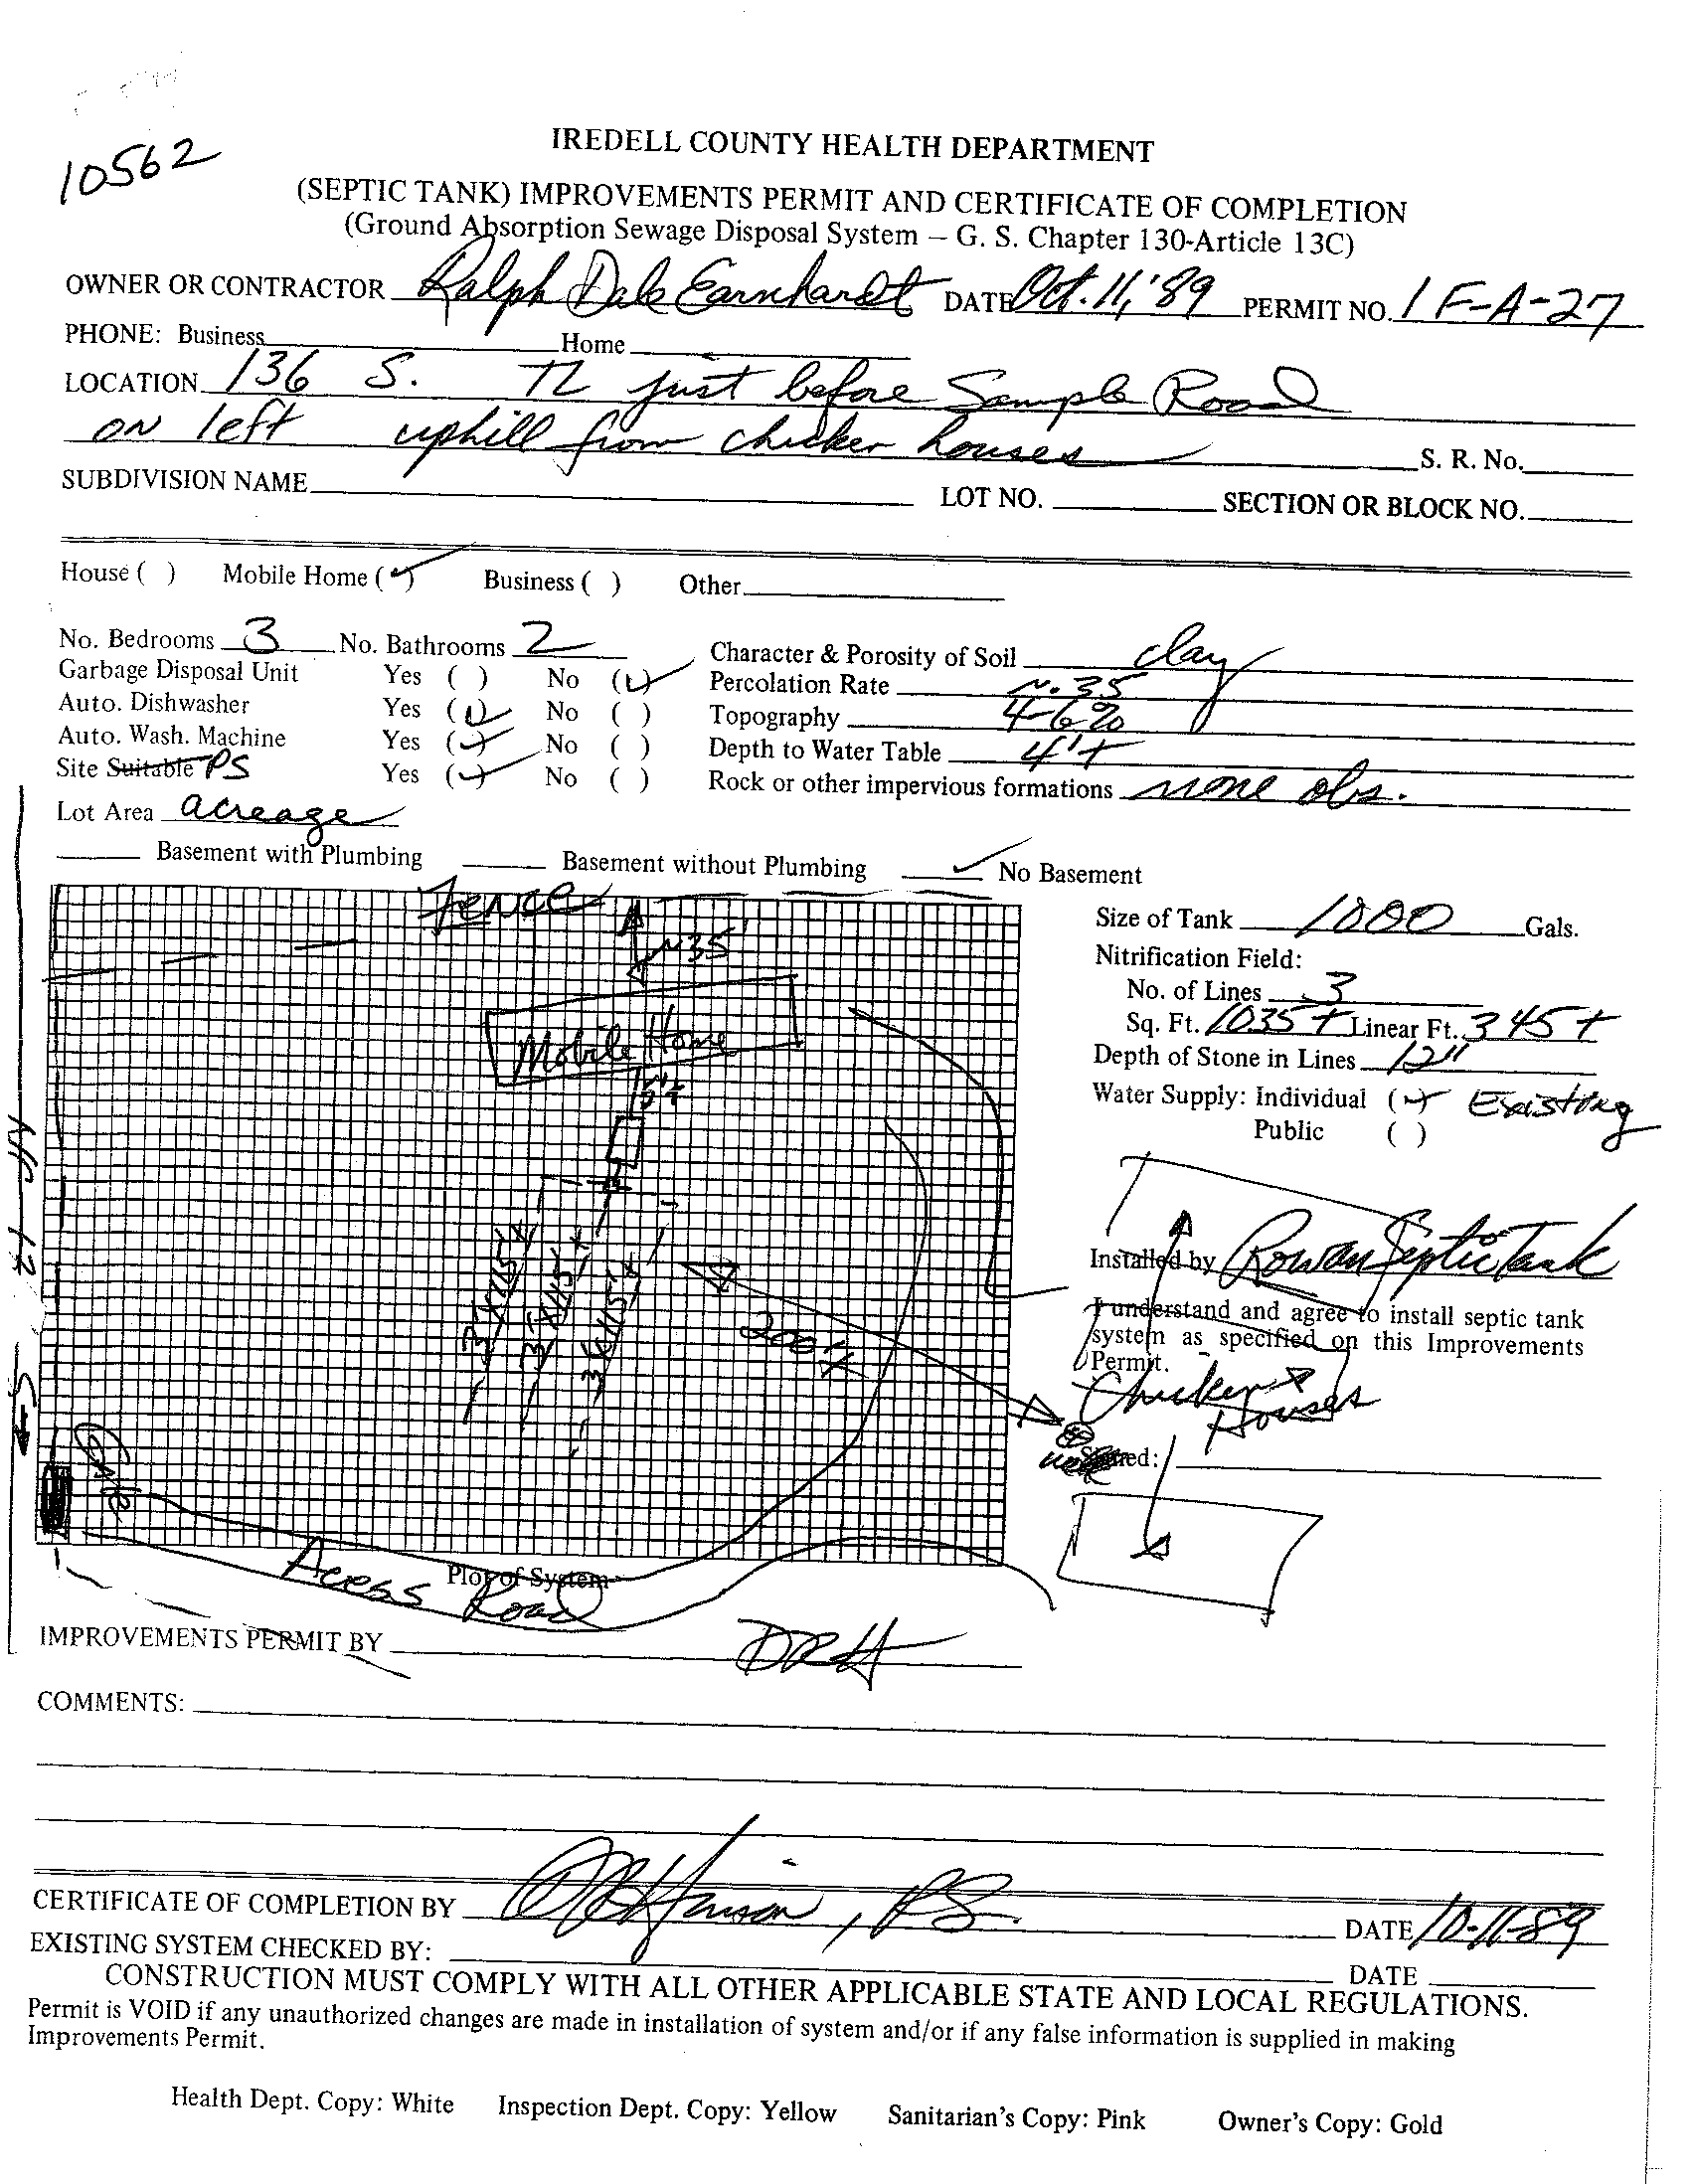 10562
IREDELL COUNTY HEALTH DEPARTMENT
(SEPTIC TANK) IMPROVEMENTS PERMIT AND CERTIFICATE OF COMPLETION
(Ground Absorption Sewage Disposal System – G. S. Chapter 130-Article 13C)
OWNER OR CONTRACTOR Ralph Dale Earnhardt DATE Oct. 11, '89 PERMIT NO. 1 F-A-27
PHONE: Business Home
LOCATION 136 S. TL just before Sample Road
on left uphill from chicken houses S. R. No.
SUBDIVISION NAME LOT NO. SECTION OR BLOCK NO.
House ( ) Mobile Home (✓) Business ( ) Other
No. Bedrooms 3 No. Bathrooms 2
Garbage Disposal Unit Yes ( ) No (✓)
Auto. Dishwasher Yes (✓) No ( )
Auto. Wash. Machine Yes (✓) No ( )
Site Suitable PS Yes (✓) No ( )
Lot Area acreage
Character & Porosity of Soil clay
Percolation Rate ~.35
Topography 4-6%
Depth to Water Table 4'+
Rock or other impervious formations none obs.
Basement with Plumbing Basement without Plumbing ✓ No Basement
Fence
~35'
Mobile Home
5'+
3'X115'+
3'X115'+
3'X115'+
200'+
Gate
Access Road
Plot of System
Size of Tank 1000 Gals.
Nitrification Field:
No. of Lines 3
Sq. Ft. 1035+ Linear Ft. 345+
Depth of Stone in Lines 12"
Water Supply: Individual (✓) Existing
Public ( )
Installed by Rowan Septic Tank
I understand and agree to install septic tank
system as specified on this Improvements
Permit.
Chicken
Houses
Signed:
IMPROVEMENTS PERMIT BY DRH
COMMENTS:
CERTIFICATE OF COMPLETION BY DRHinson, RS. DATE 10-11-89
EXISTING SYSTEM CHECKED BY: DATE
CONSTRUCTION MUST COMPLY WITH ALL OTHER APPLICABLE STATE AND LOCAL REGULATIONS.
Permit is VOID if any unauthorized changes are made in installation of system and/or if any false information is supplied in making
Improvements Permit.
Health Dept. Copy: White Inspection Dept. Copy: Yellow Sanitarian's Copy: Pink Owner's Copy: Gold